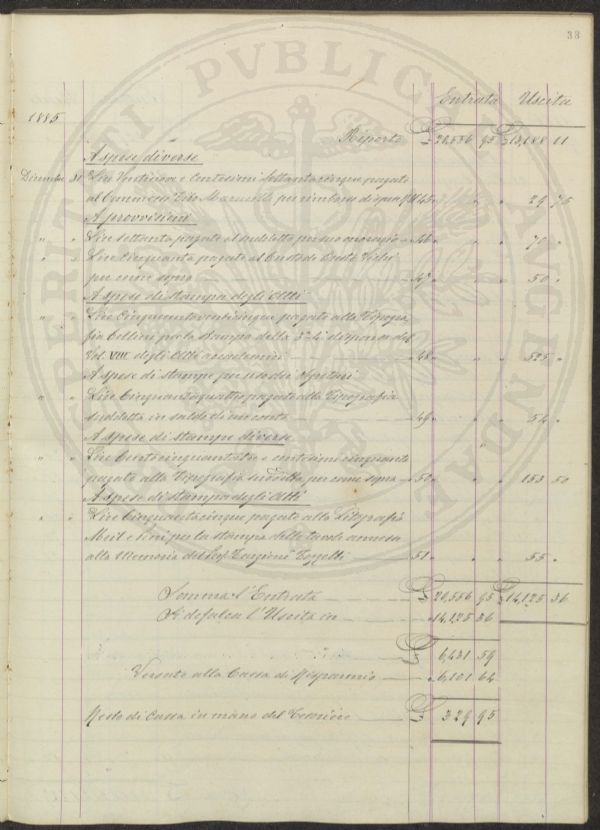 33
Entrata Uscita
1885
Riporto £ 20,556 95 £ 13,188 11
A spese diverse
Dicembre 31 Lire Ventinove e Centesimi Settantacinque pagate
al Commesso Marinelli per rimborso di spese 45 " " 29 75
A provvisioni
" " Lire Settanta pagate al suddetto per suo onorario 46 " " 70 "
" " Lire Cinquanta pagate al Custode
per come sopra 47 " " 50 "
A spese di stampa degli Atti
" " Lire Cinquecentoventicinque pagate alla Tipogra
fia Cellini per la stampa della 3a e 4a dispensa del
Vol. VIII degli Atti accademici 48 " " 525 "
A spese di stampe per uso dei
" " Lire Cinquantaquattro pagate alla Tipografia
suddetta in saldo di un conto 49 " " 54 "
A spese di stampe diverse
" " Lire Centocinquantatre e centesimi cinquanta
pagate alla Tipografia suddetta per come sopra 50 " " 153 50
A spese di stampa degli Atti
" " Lire Cinquantacinque pagate alla Litografia
per la stampa delle tavole annesse
alla Memoria del Prof. Targioni Tozzetti 51 " " 55 "
Somma l'Entrata £ 20,556 95 £ 14,125 36
Si defalca l'Uscita in " 14,125 36
£ 6,431 59
Versate alla Cassa di Risparmio " 6,101 64
Resto di Cassa in mano del Tesoriere £ 329 95
PUBLICAE
PROSPERITATI
AUGENDAE